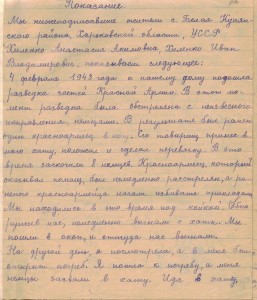 Показание.
Мы нижеподписавшиеся жители с Белая Купян-
ского района, Харьковской области, УССР
Хиленко Анастасия Акимовна, Хиленко Иван
Владимирович, показываем следующее:
4 февраля 1943 года к нашему дому подошла
разведка частей Красной Армии. В этот мо-
мент разведка была обстреляна с неизвестного
направления немцами. В результате был ранен
один красноармеец в ногу. Его товарищ принес в
мою хату, положил и сделал перевязку. В это
время заскочили 8 немцев. Красноармеец, который
оказывал помощь, был немедленно расстрелян, а ра-
неного красноармейца начали избивать прикладами
Мы находились в это время под койкой.
нас, немедленно выгнали с хаты. Мы
пошли в окоп, и оттуда нас выгнали.
На другой день, я посмотрела, а в меня был
открыт погреб. Я пошла к погребу, а меня
немцы позвали в хату. Идя в хату,